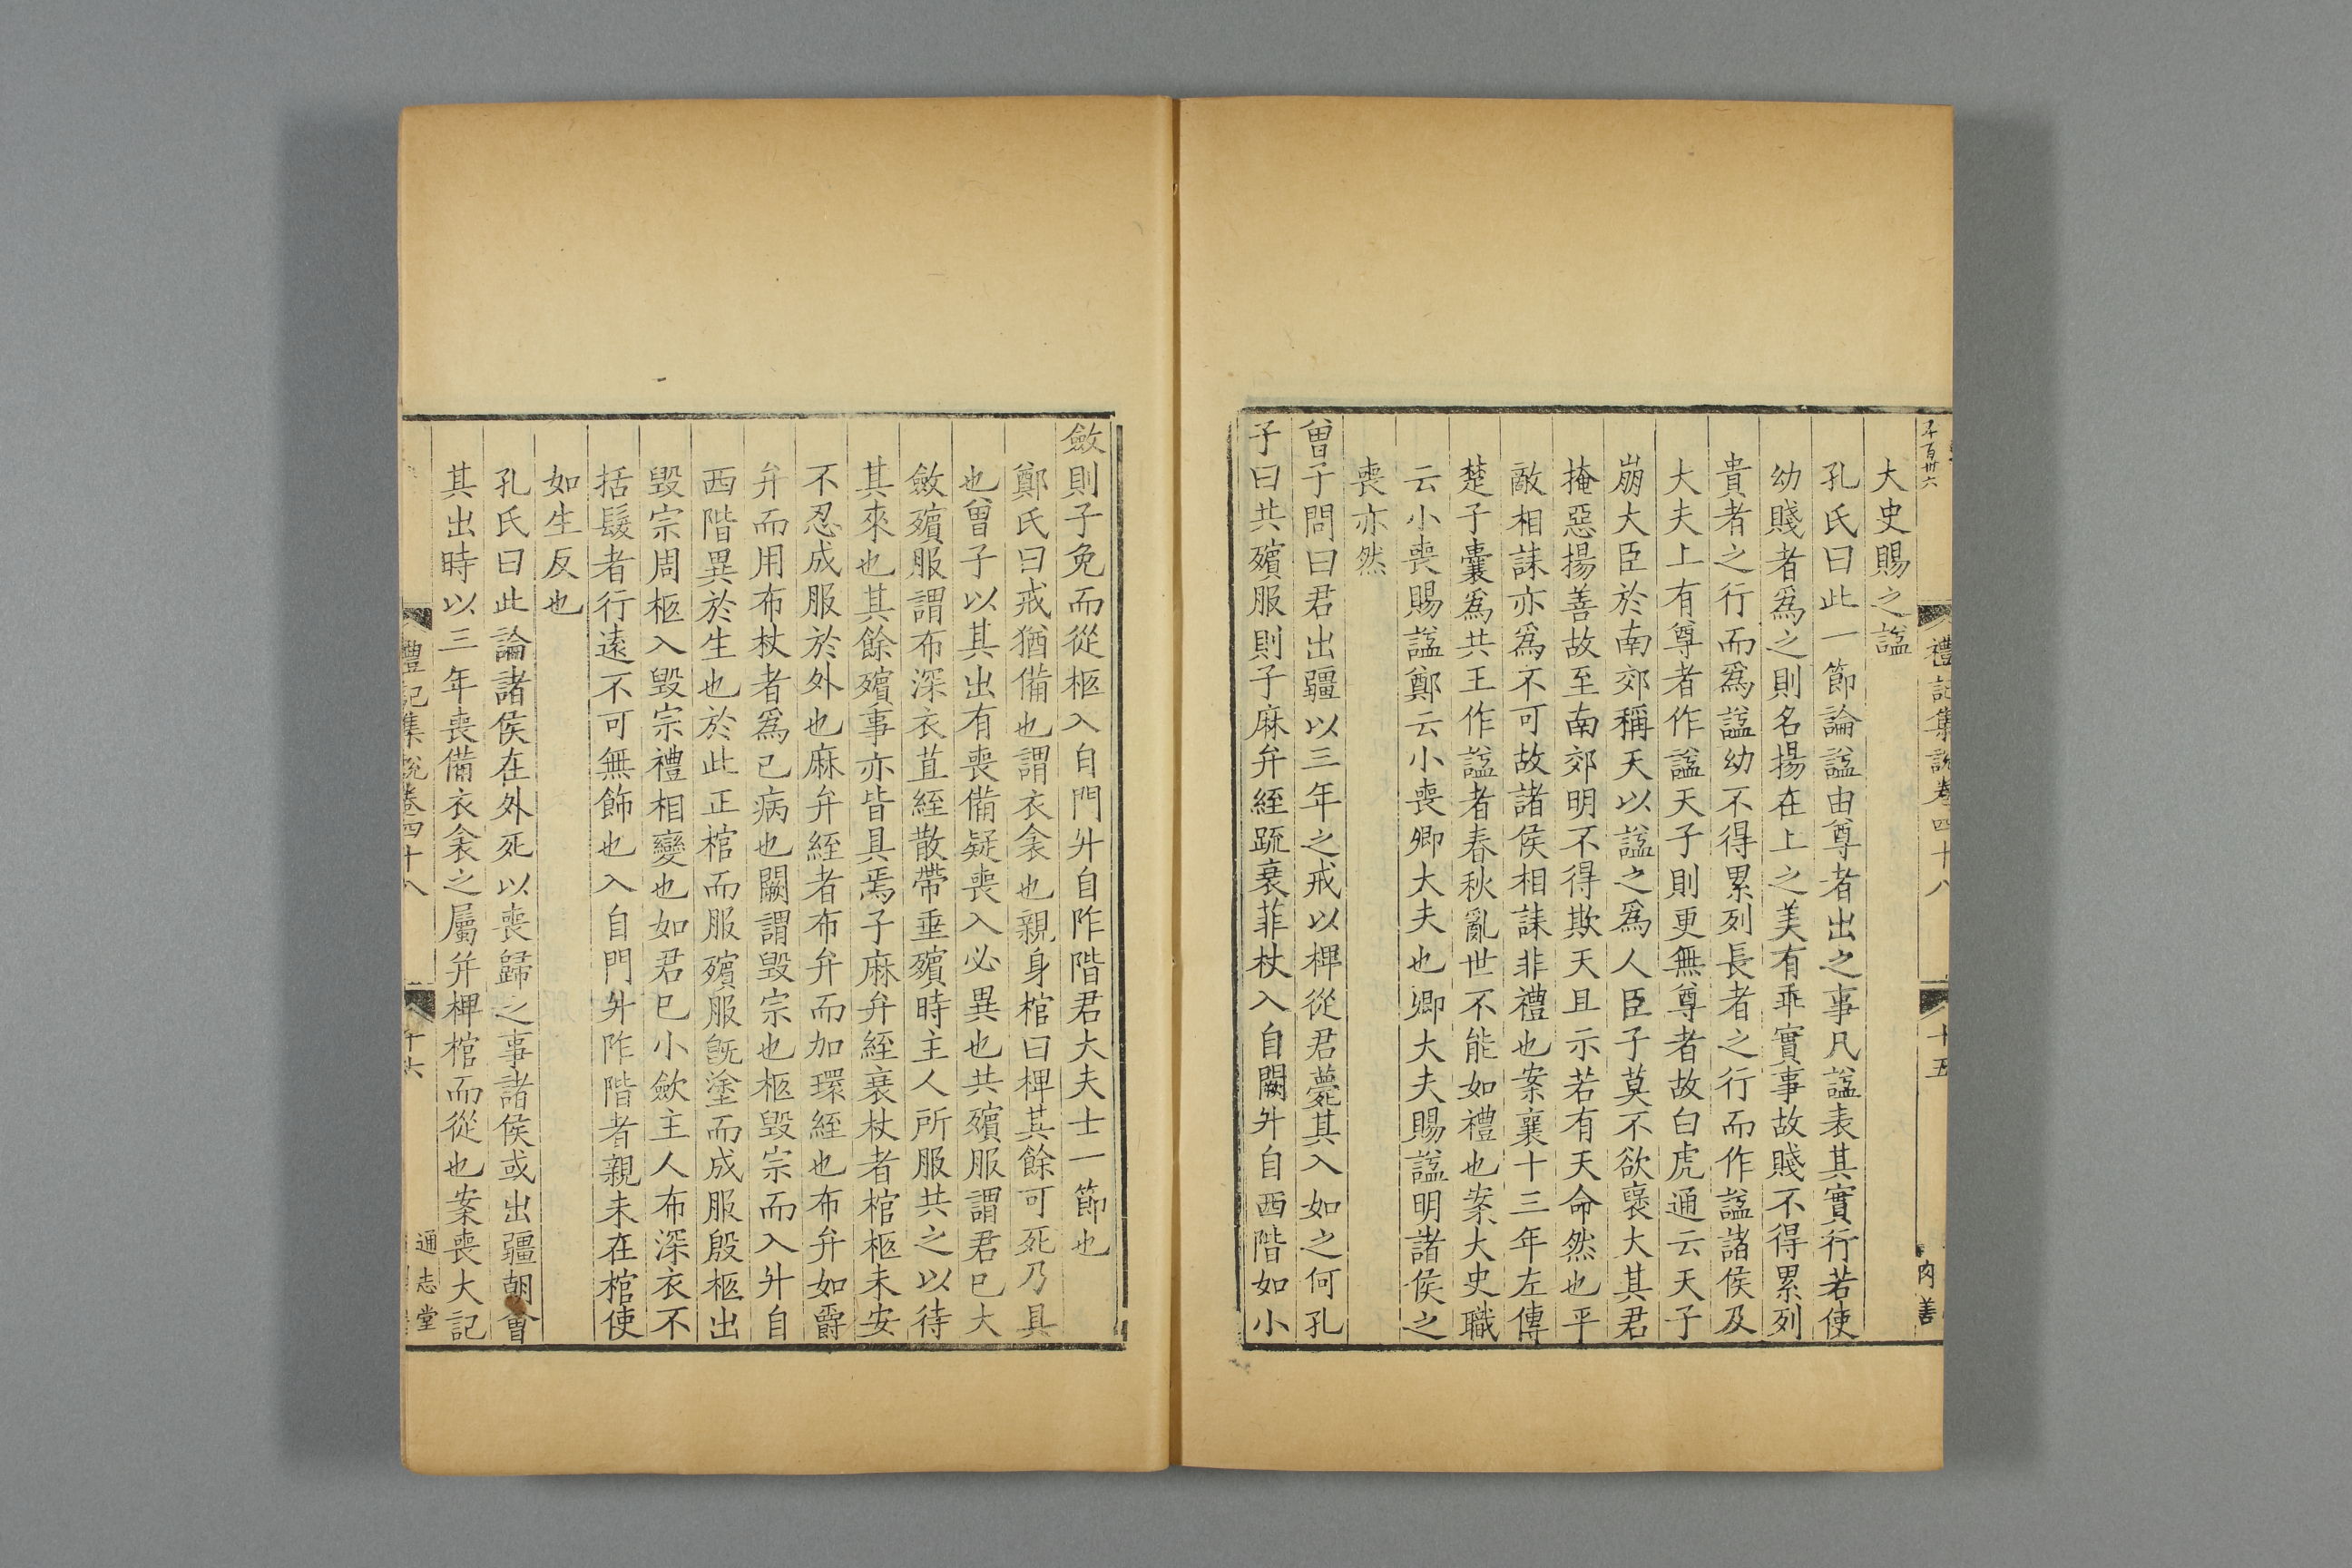 禮記集說卷四十八
十五
大史賜之諡
孔氏曰此一節論諡由尊者出之事凡諡表其實行若使
幼賤者爲之則名揚在上之美有乖實事故賤不得累列
貴者之行而爲諡幼不得累列長者之行而作諡諸侯及
大夫上有尊者作諡天子則更無尊者故白虎通云天子
崩大臣於南郊稱天以諡之爲人臣子莫不欲襃大其君
掩惡揚善故至南郊明不得欺天且示若有天命然也平
敵相誄亦爲不可故諸侯相誄非禮也案襄十三年左傳
楚子囊爲共王作諡者春秋亂世不能如禮也案大史職
云小喪賜諡鄭云小喪卿大夫也卿大夫賜諡明諸侯之
喪亦然
曾子問曰君出疆以三年之戒以椑從君薨其入如之何孔
子曰共殯服則子麻弁絰疏衰菲杖入自闕升自西階如小
斂則子免而從柩入自門升自阼階君大夫士一節也
鄭氏曰戒猶備也謂衣衾也親身棺曰椑其餘可死乃具
也曾子以其出有喪備疑喪入必異也共殯服謂君已大
斂殯服謂布深衣苴絰散帶垂殯時主人所服共之以待
其來也其餘殯事亦皆具焉子麻弁絰衰杖者棺柩未安
不忍成服於外也麻弁絰者布弁而加環絰也布弁如爵
弁而用布杖者爲已病也闕謂毀宗也柩毀宗而入升自
西階異於生也於此正棺而服殯服旣塗而成服殷柩出
毀宗周柩入毀宗禮相變也如君已小歛主人布深衣不
括髮者行遠不可無飾也入自門升阼階者親未在棺使
如生反也
孔氏曰此論諸侯在外死以喪歸之事諸侯或出疆朝會
其出時以三年喪備衣衾之屬并椑棺而從也案喪大記
禮記集說卷四十八
十六
通志堂